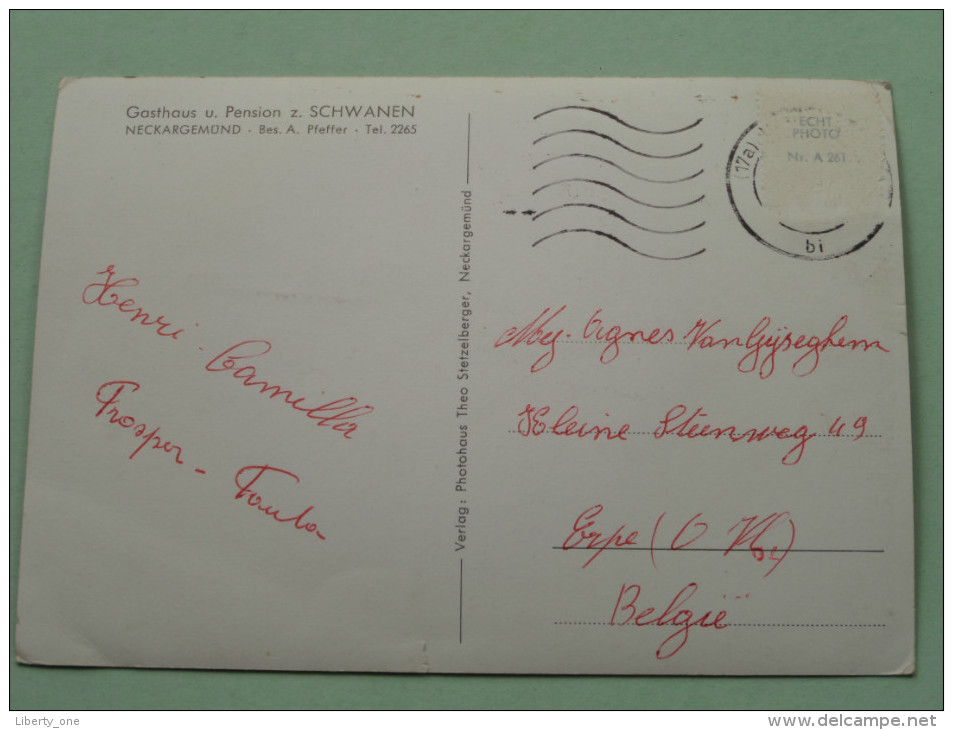 Gasthaus u. Pension z. SCHWANEN
NECKARGEMÜND · Bes. A. Pfeffer · Tel. 2265
Henri - Camilla
Prosper - Paula
Verlag: Photohaus Theo Stetzelberger, Neckargemünd
(17a)
bi
ECHT
PHOTO
Nr. A 261
Mej. Agnes Van Gijseghem
Kleine Steenweg 49
Erpe (O Vl.)
België
Liberty_one
www.delcampe.net